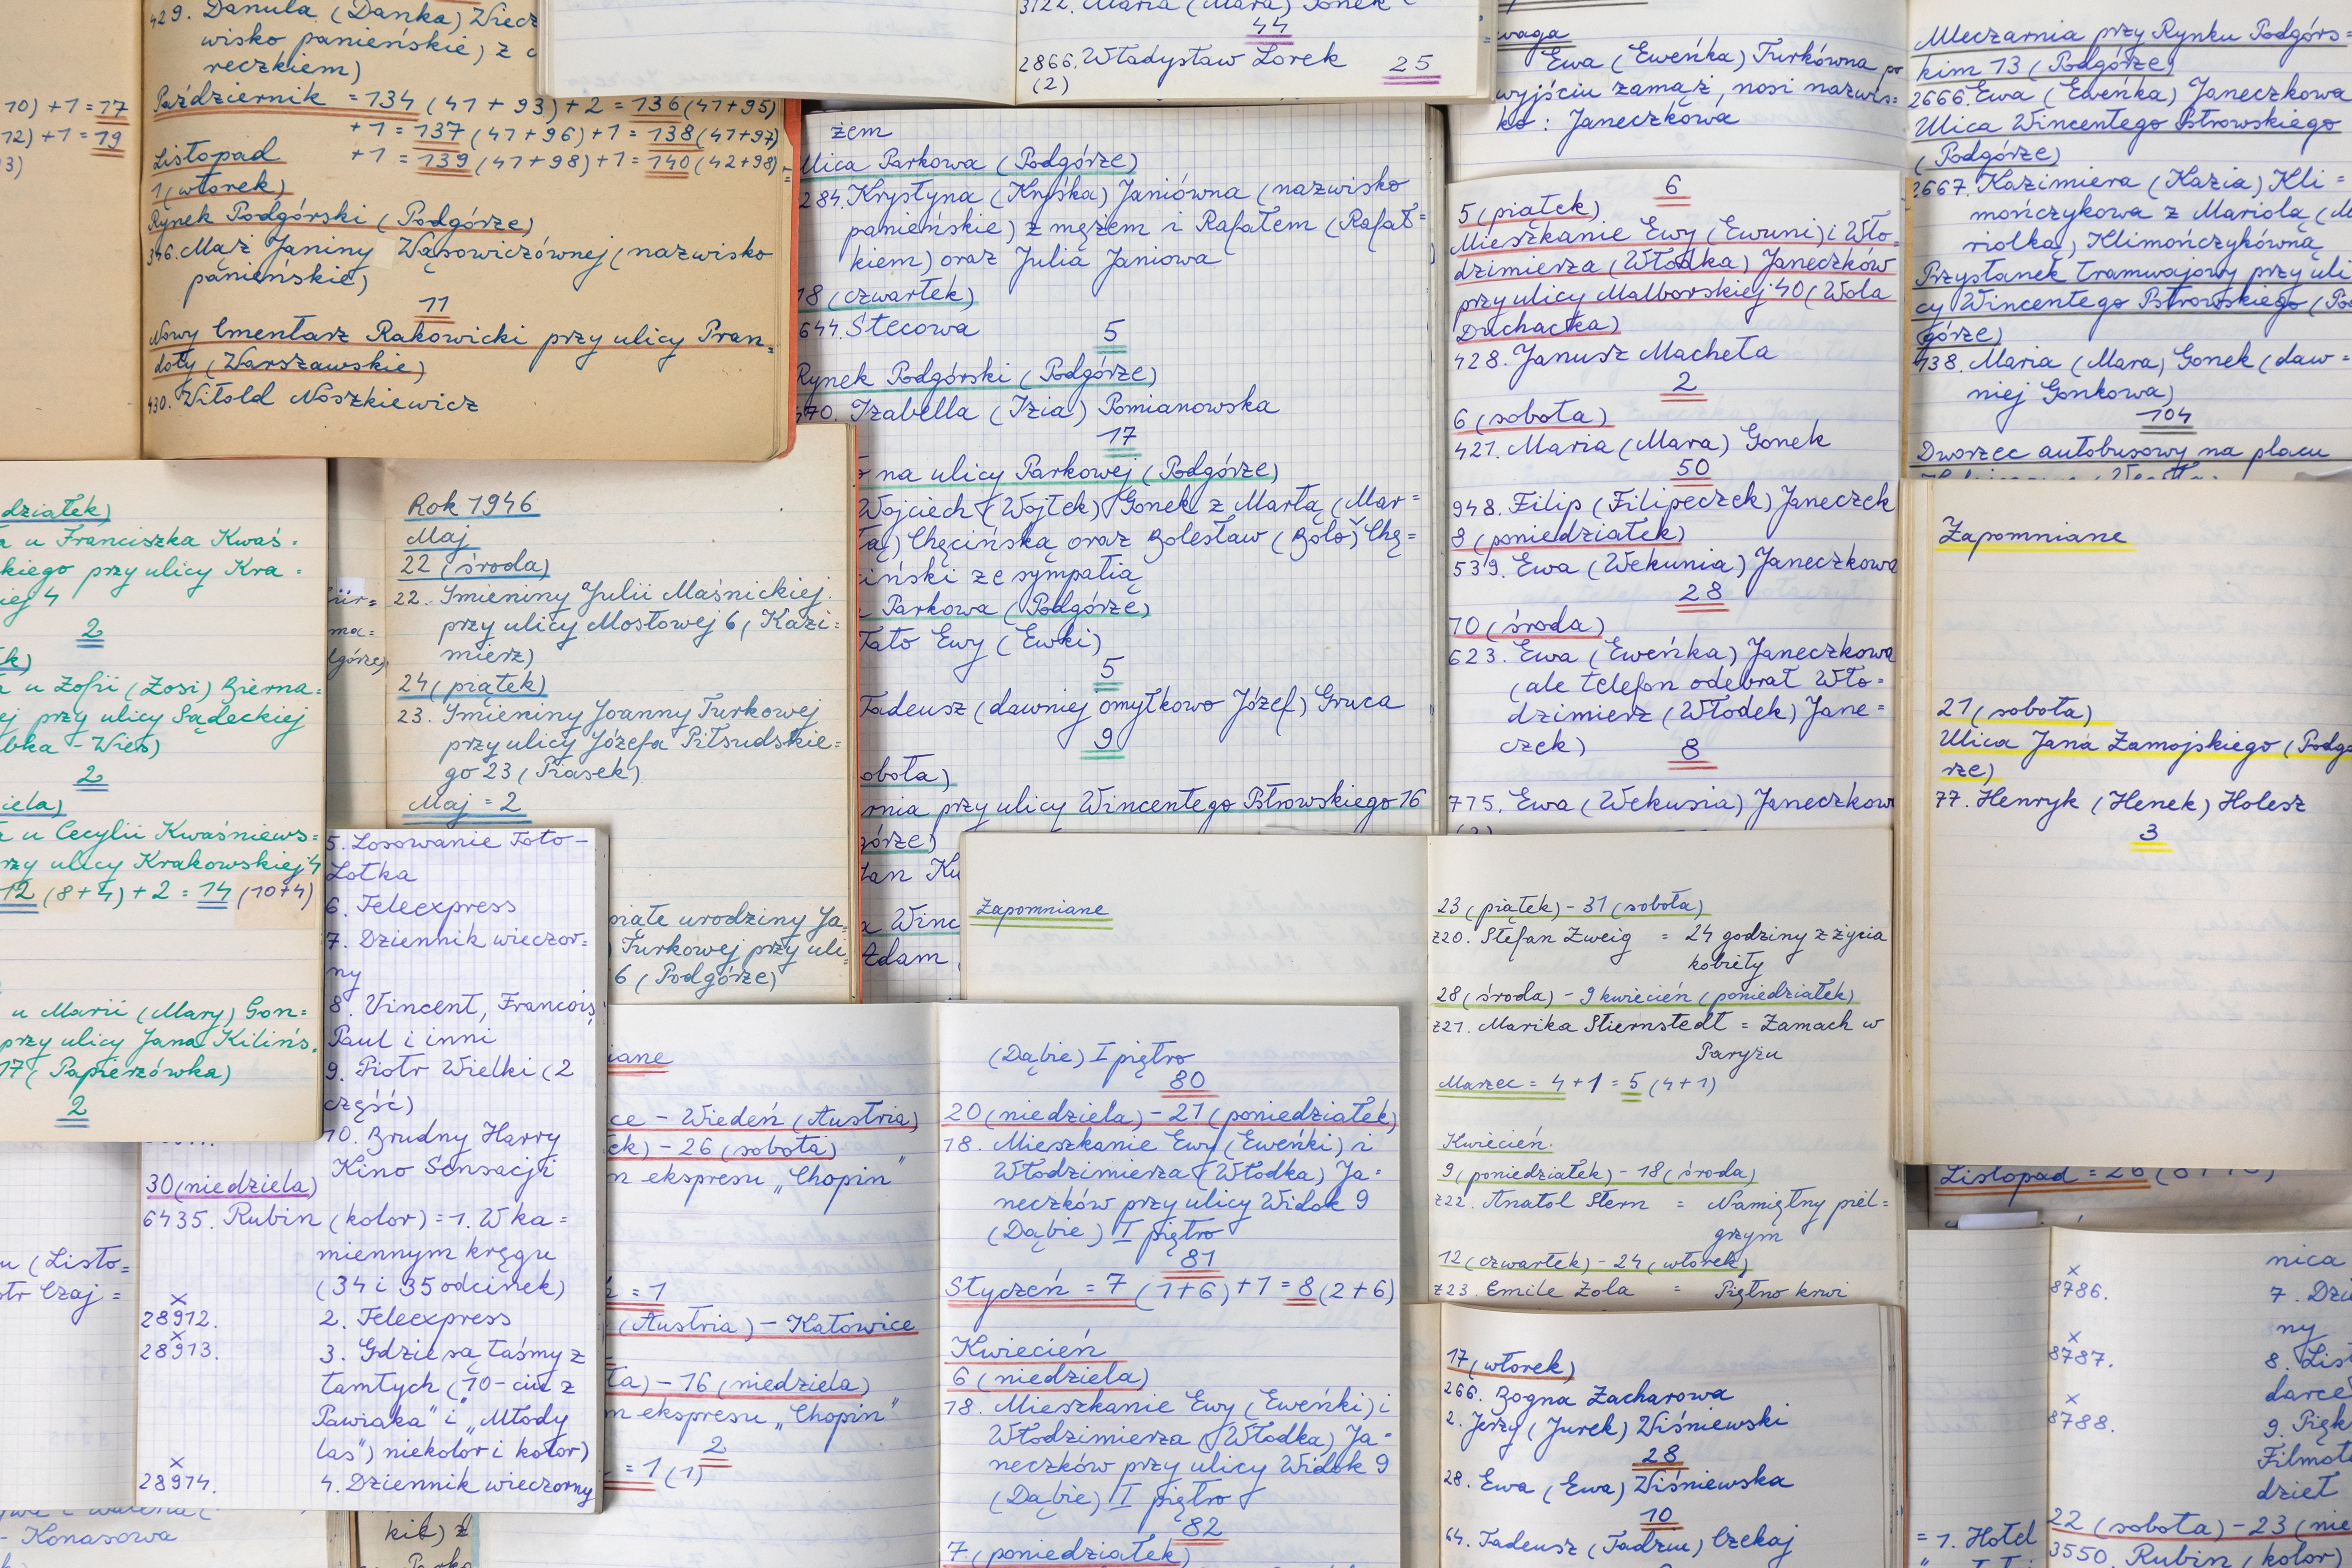 429. Danuta (Danka) Wiecz
wisko panieńskie) z
reczkiem)
Październik = 134 (41 + 93) + 2 = 136 (41+95)
+1 = 137 (41+96) + 1 = 138 (41+97)
Listopad +1 = 139 (41+98) + 1 = 140 (42+98)
1 (wtorek)
Rynek Podgórski (Podgórze)
346. Mąż Janiny Wąsowiczównej (nazwisko
panieńskie)
11
Nowy Cmentarz Rakowicki przy ulicy Pran=
doty (Warszawskie)
430. Witold Noszkiewicz
10) + 1 = 17
12) + 1 = 19
3122. Maria (Mara) Gonek
44
2866. Władysław Lorek 25
(2)
waga
Ewa (Eweńka) Turkówna po
wyjściu zamąż, nosi nazwis=
ko: Janeczkowa
Mleczarnia przy Rynku Podgórs=
kim 13 (Podgórze)
2666. Ewa (Eweńka) Janeczkowa
Ulica Wincentego Pstrowskiego
(Podgórze)
2667. Kazimiera (Kazia) Kli=
mończykowa z Mariolą (M
riolką) Klimończykówną
Przystanek tramwajowy przy uli
cy Wincentego Pstrowskiego (Po
górze)
138. Maria (Mara) Gonek (daw=
niej Gonkowa)
104
Dworzec autobusowy na placu
żem
Ulica Parkowa (Podgórze)
284. Krystyna (Kryśka) Janiówna (nazwisko
panieńskie) z mężem i Rafałem (Rafał=
kiem) oraz Julia Janiowa
18 (czwartek)
644. Stecowa
5
Rynek Podgórski (Podgórze)
470. Izabella (Izia) Pomianowska
17
na ulicy Parkowej (Podgórze)
Wojciech (Wojtek) Gonek z Martą (Mar=
tą) Chęcińską oraz Bolesław (Bolo) Chę=
ciński ze sympatią
Parkowa (Podgórze)
Tato Ewy (Ewki)
5
Tadeusz (dawniej omyłkowo Józef) Gruca
9
obota)
rnia przy ulicy Wincentego Pstrowskiego 16
górze)
Adam
6
5 (piątek)
Mieszkanie Ewy (Ewuni) i Wło=
dzimierza (Włodka) Janeczków
przy ulicy Malborskiej 40 (Wola
Duchacka)
428. Janusz Macheta
2
6 (sobota)
421. Maria (Mara) Gonek
50
948. Filip (Filipeczek) Janeczek
8 (poniedziałek)
539. Ewa (Wekunia) Janeczkowa
28
10 (środa)
623. Ewa (Eweńka) Janeczkowa
(ale telefon odebrał Wło=
dzimierz (Włodek) Jane=
czek)
8
775. Ewa (Wekusia) Janeczkow
Zapomniane
21 (sobota)
Ulica Jana Zamojskiego (Podgó
rze)
77. Henryk (Henek) Holesz
3
działek)
u Franciszka Kwaś=
kiego przy ulicy Kra=
iej 4
2
u Zofii (Zosi) Bierna=
ej przy ulicy Sądeckiej
bka - Wieś)
2
iela)
u Cecylii Kwaśniews=
rzy ulicy Krakowskiej 4
12 (8+4) + 2 = 14 (10+4)
u Marii (Mary) Gon=
przy ulicy Jana Kilińs=
17 (Papierzówka)
2
Rok 1946
Maj
22 (środa)
22. Imieniny Julii Maśnickiej
przy ulicy Mostowej 6 (Kazi=
mierz)
24 (piątek)
23. Imieniny Joanny Turkowej
przy ulicy Józefa Piłsudskie=
go 23 (Piasek)
Maj = 2
piąte urodziny Ja=
Turkowej przy uli=
6 (Podgórze)
5. Losowanie Toto-
Lotka
6. Teleexpress
7. Dziennik wieczor=
ny
8. Vincent, Francois,
Paul i inni
9. Piotr Wielki (2
część)
10. Brudny Harry
Kino Sensacji
30 (niedziela)
6435. Rubin (kolor) = 1. W ka=
miennym kręgu
(34 i 35 odcinek)
x
28912. 2. Teleexpress
x
28913. 3. Gdzie są taśmy z
tamtych (10-ciu z
Pawiaka" i „Młody
las") niekolor i kolor)
x
28914. 4. Dziennik wieczorny
Konasowa
iane
ce - Wiedeń (Austria)
ek) - 26 (sobota)
m ekspresu „Chopin"
= 1
(Austria) - Katowice
ta) - 16 (niedziela)
m ekspresu „Chopin"
2
= 1 (1)
Zapomniane
(Dąbie) I piętro
80
20 (niedziela) - 21 (poniedziałek)
18. Mieszkanie Ewy (Eweńki) i
Włodzimierza (Włodka) Ja=
neczków przy ulicy Widok 9
(Dąbie) I piętro
81
Styczeń = 7 (1+6) + 1 = 8 (2+6)
Kwiecień
6 (niedziela)
18. Mieszkanie Ewy (Eweńki) i
Włodzimierza (Włodka) Ja=
neczków przy ulicy Widok 9
(Dąbie) I piętro
82
7 (poniedziałek)
23 (piątek) - 31 (sobota)
z20. Stefan Zweig = 24 godziny z życia
kobiety
28 (środa) - 9 kwiecień (poniedziałek)
z21. Marika Stiernstedt = Zamach w
Paryżu
Marzec = 4 + 1 = 5 (4+1)
Kwiecień
9 (poniedziałek) - 18 (środa)
z22. Anatol Stern = Namiętny piel=
grzym
12 (czwartek) - 24 (wtorek)
z23. Emile Zola = Piętno krwi
17 (wtorek)
266. Bogna Zacharowa
2. Jerzy (Jurek) Wiśniewski
28
28. Ewa (Ewa) Wiśniewska
10
64. Tadeusz (Tadziu) Czekaj
nica
x
8786. 7. Dzi
ny
x
8787. 8. List
darce
x
8788. 9. Pięk
Filmot
dzieł
22 (sobota) - 23 (nie
= 1. Hotel
3550. Rubin (kolor)